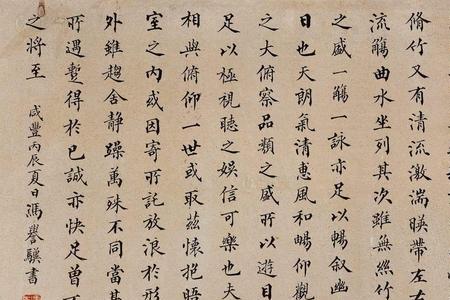 脩竹又有清流激湍暎帶左右
流觴曲水坐列其次雖無絲竹
之盛一觴一詠亦足以暢叙幽
日也天朗氣清惠風和暢仰觀
之大俯察品類之盛所以遊目
足以極視聽之娛信可樂也夫
相與俯仰一世或取茲懷抱晤
室之内或因寄所託放浪於形
外雖趨舍静躁萬殊不同當其
所遇蹔得於己誠亦快足曾不
之將至
咸豐丙辰夏日馮譽驥書